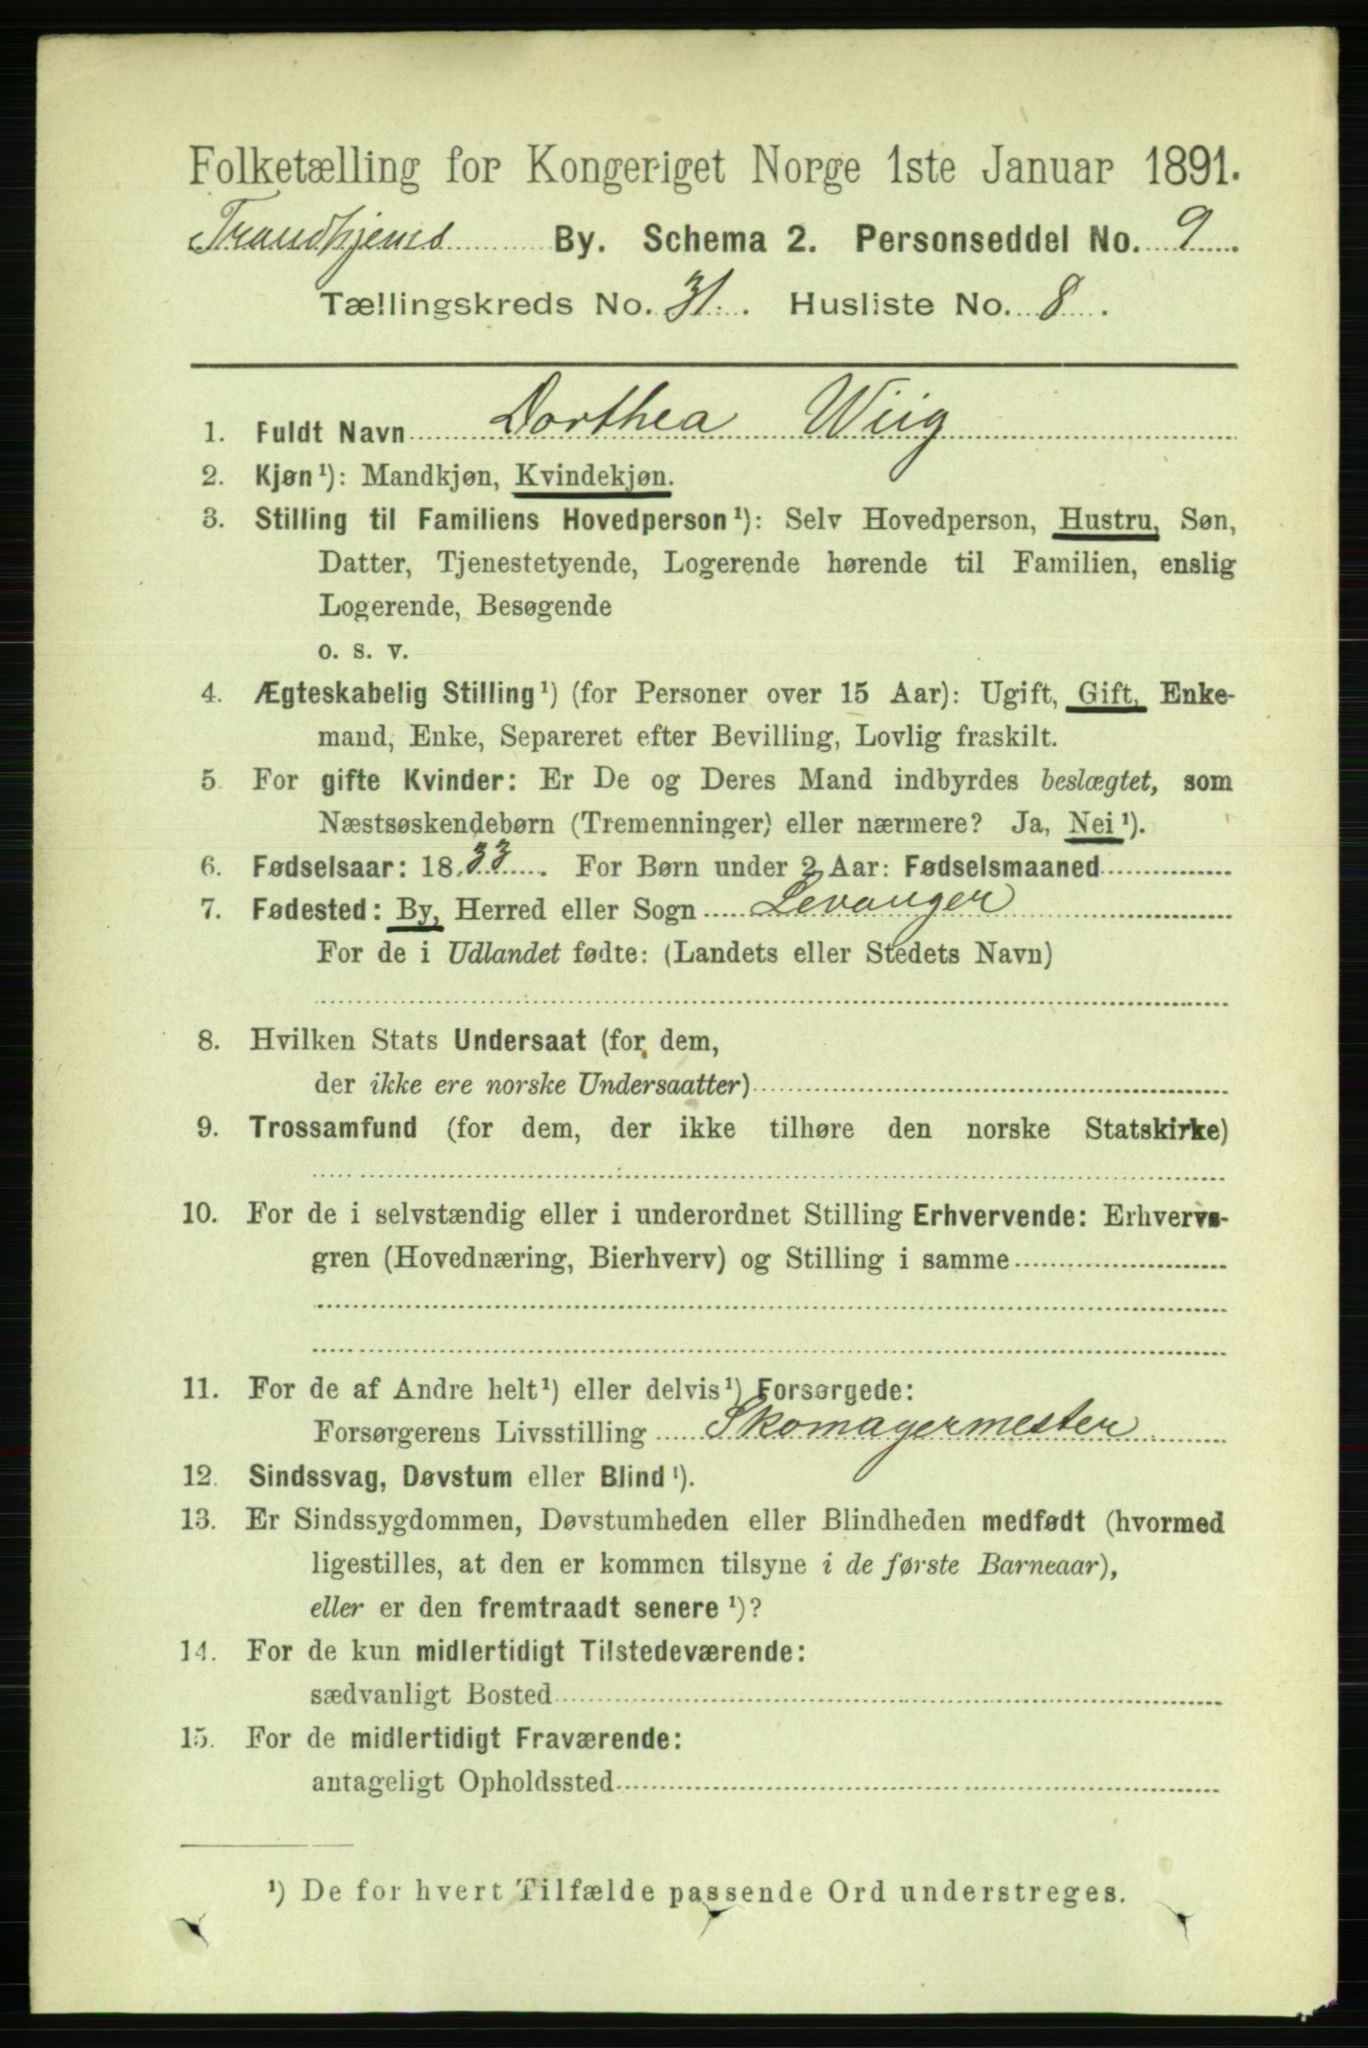 Folketælling for Kongeriget Norge 1ste Januar 1891.
Trondhjems By. Schema 2. Personseddel No. 9
Tællingskreds No. 31. Husliste No. 8.
1. Fuldt Navn Dorthea Wiig
2. Kjøn¹): Mandkjøn, Kvindekjøn.
3. Stilling til Familiens Hovedperson¹): Selv Hovedperson, Hustru, Søn,
Datter, Tjenestetyende, Logerende hørende til Familien, enslig
Logerende, Besøgende
o. s. v.
4. Ægteskabelig Stilling¹) (for Personer over 15 Aar): Ugift, Gift, Enke-
mand, Enke, Separeret efter Bevilling, Lovlig fraskilt.
5. For gifte Kvinder: Er De og Deres Mand indbyrdes beslægtet, som
Næstsøskendebørn (Tremenninger) eller nærmere? Ja, Nei¹).
6. Fødselsaar: 1833. For Børn under 2 Aar: Fødselsmaaned
7. Fødested: By, Herred eller Sogn Levanger
For de i Udlandet fødte: (Landets eller Stedets Navn)
8. Hvilken Stats Undersaat (for dem,
der ikke ere norske Undersaatter)
9. Trossamfund (for dem, der ikke tilhøre den norske Statskirke)
10. For de i selvstændig eller i underordnet Stilling Erhvervende: Erhvervs-
gren (Hovednæring, Bierhverv) og Stilling i samme
11. For de af Andre helt¹) eller delvis¹) Forsørgede:
Forsørgerens Livsstilling Skomagermester
12. Sindssvag, Døvstum eller Blind¹).
13. Er Sindssygdommen, Døvstumheden eller Blindheden medfødt (hvormed
ligestilles, at den er kommen tilsyne i de første Barneaar),
eller er den fremtraadt senere¹)?
14. For de kun midlertidigt Tilstedeværende:
sædvanligt Bosted
15. For de midlertidigt Fraværende:
antageligt Opholdssted
¹) De for hvert Tilfælde passende Ord understreges.